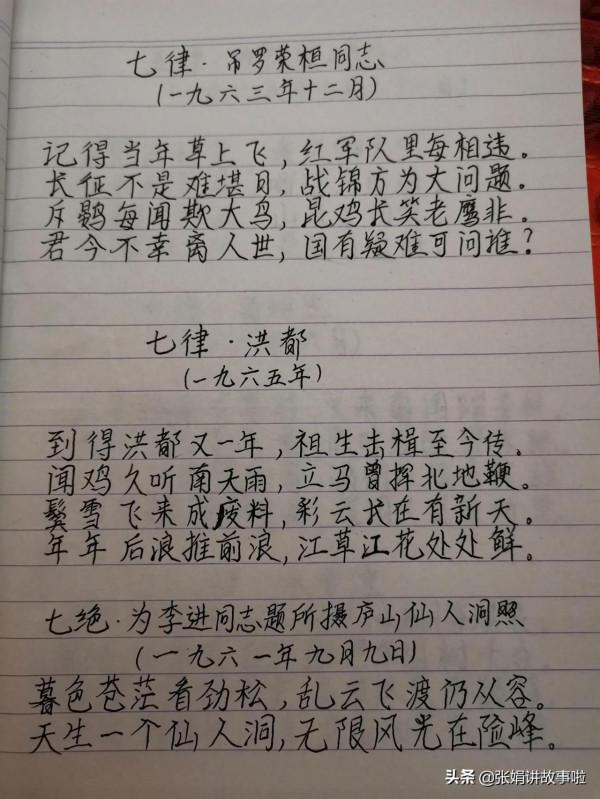 七律·吊罗荣桓同志
(一九六三年十二月)
记得当年草上飞,红军队里每相违。
长征不是难堪日,战锦方为大问题。
斥鷃每闻欺大鸟,昆鸡长笑老鹰非。
君今不幸离人世,国有疑难可问谁?
七律·洪都
(一九六五年)
到得洪都又一年,祖生击楫至今传。
闻鸡久听南天雨,立马曾挥北地鞭。
鬓雪飞来成废料,彩云长在有新天。
年年后浪推前浪,江草江花处处鲜。
七绝·为李进同志题所摄庐山仙人洞照
(一九六一年九月九日)
暮色苍茫看劲松,乱云飞渡仍从容。
天生一个仙人洞,无限风光在险峰。
头条 @张娟讲故事啦